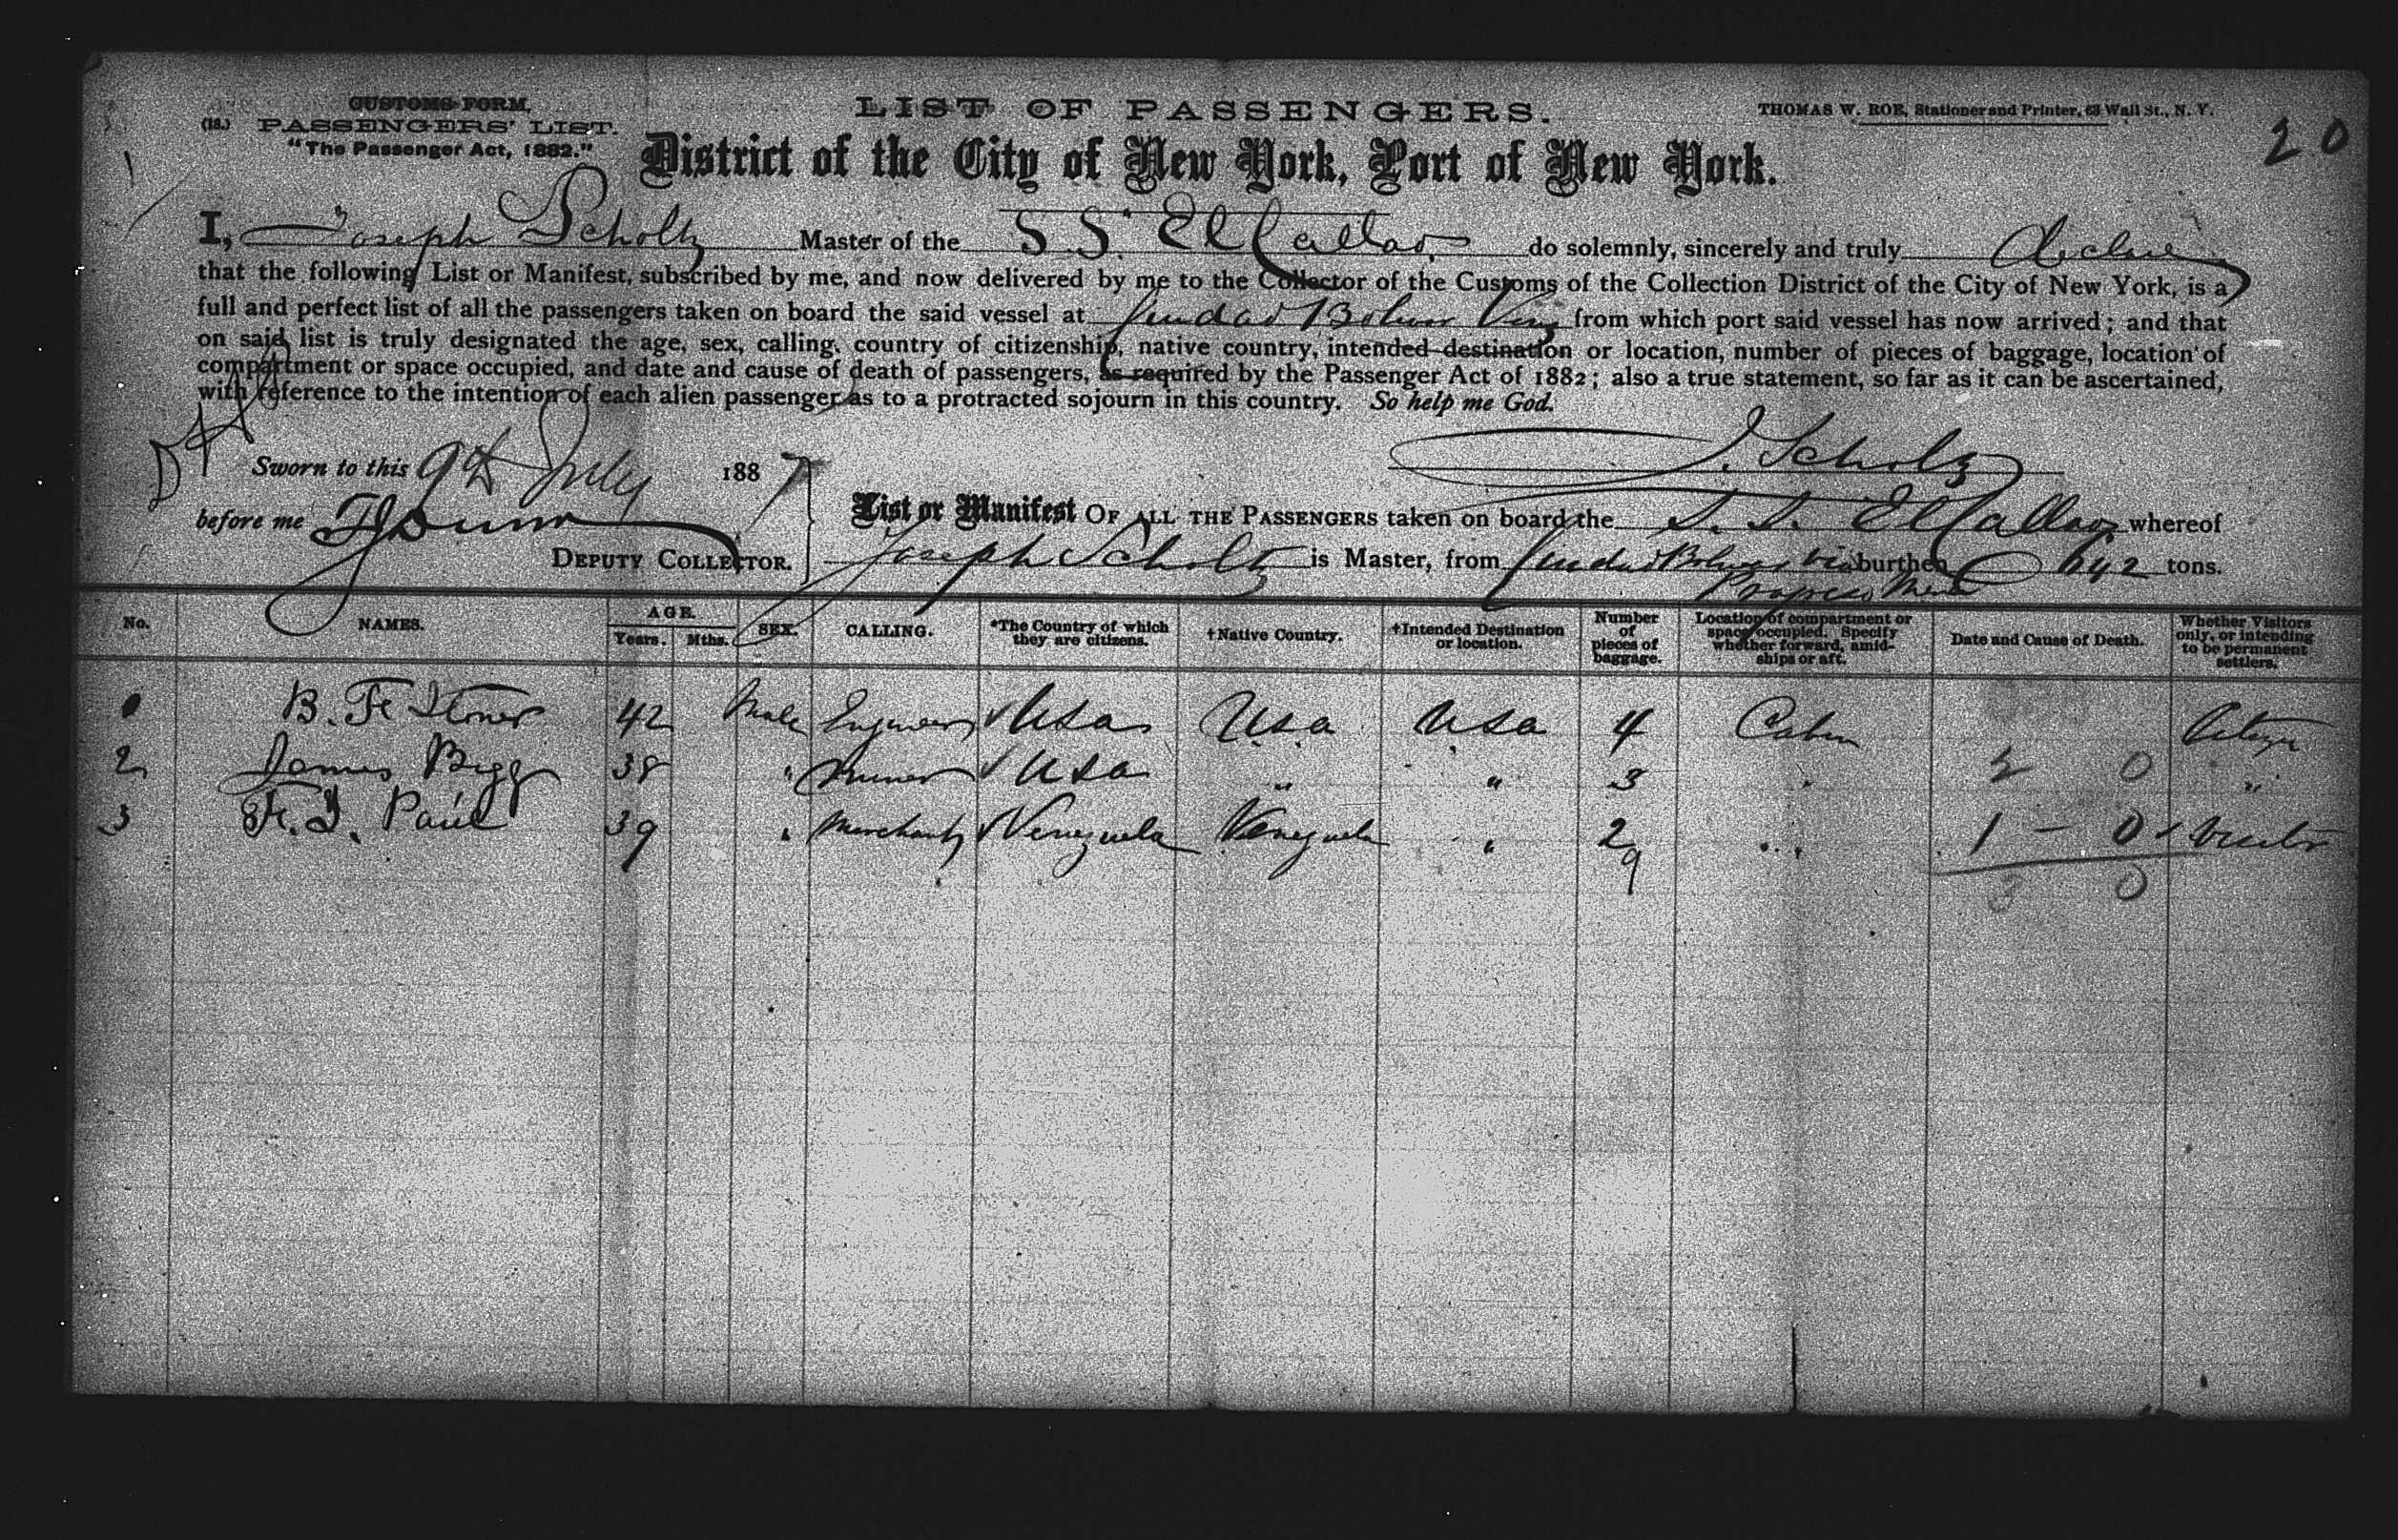 CUSTOMS FORM.
(18.) PASSENGERS' LIST.
"The Passenger Act, 1882."
LIST OF PASSENGERS.
THOMAS W. ROE, Stationer and Printer, 63 Wall St., N. Y.
20
District of the City of New York, Port of New York.
I, Joseph Scholtz Master of the S.S. El Callao do solemnly, sincerely and truly declare
that the following List or Manifest, subscribed by me, and now delivered by me to the Collector of the Customs of the Collection District of the City of New York, is a
full and perfect list of all the passengers taken on board the said vessel at Ciudad Bolivar Ven from which port said vessel has now arrived; and that
on said list is truly designated the age, sex, calling, country of citizenship, native country, intended destination or location, number of pieces of baggage, location of
compartment or space occupied, and date and cause of death of passengers, as required by the Passenger Act of 1882; also a true statement, so far as it can be ascertained,
with reference to the intention of each alien passenger as to a protracted sojourn in this country. So help me God.
J. Scholtz
Sworn to this 9th July 1887
before me
DEPUTY COLLECTOR.
List or Manifest OF ALL THE PASSENGERS taken on board the S. S. El Callao whereof
Joseph Scholtz is Master, from Ciudad Bolivar via burthen 642 tons.
Progreso
No. NAMES. AGE. Years. Mths. SEX. CALLING. *The Country of which they are citizens. †Native Country. †Intended Destination or location. Number of pieces of baggage. Location of compartment or space occupied. Specify whether forward, amidships or aft. Date and Cause of Death. Whether Visitors only, or intending to be permanent settlers.
B. F. Stoner 42 Male Engineer USA U.S.a USa 4 Cabin
2 James Bigg 38 " Miner USA " " 3 " 2 0 "
3 F. J. Paúl 39 " Merchant Venezuela Venezuela " 2 " 1 - 0
9
3 0